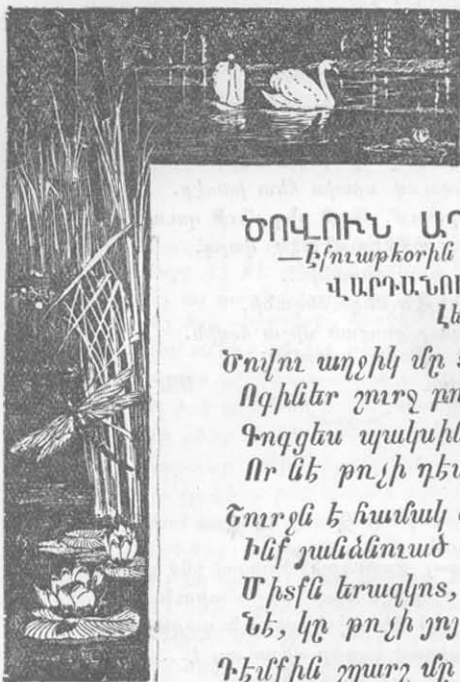 ԾՈՎՈՒՆ ԱՂ
—Էֆուարքեօրին
ՎԱՐԴԱՆՈՒ
Լե
Ծովու աղջիկ մը
Ոգիներ շուրջ բո
Գոգցես պակսին
Որ նէ բռչի դէպ
Շուրջն է համակ
Ինք յանձնուած
Միտքն երազկոտ,
Նէ, կը բռչի յոյ
Դէմքին շղարշ մը